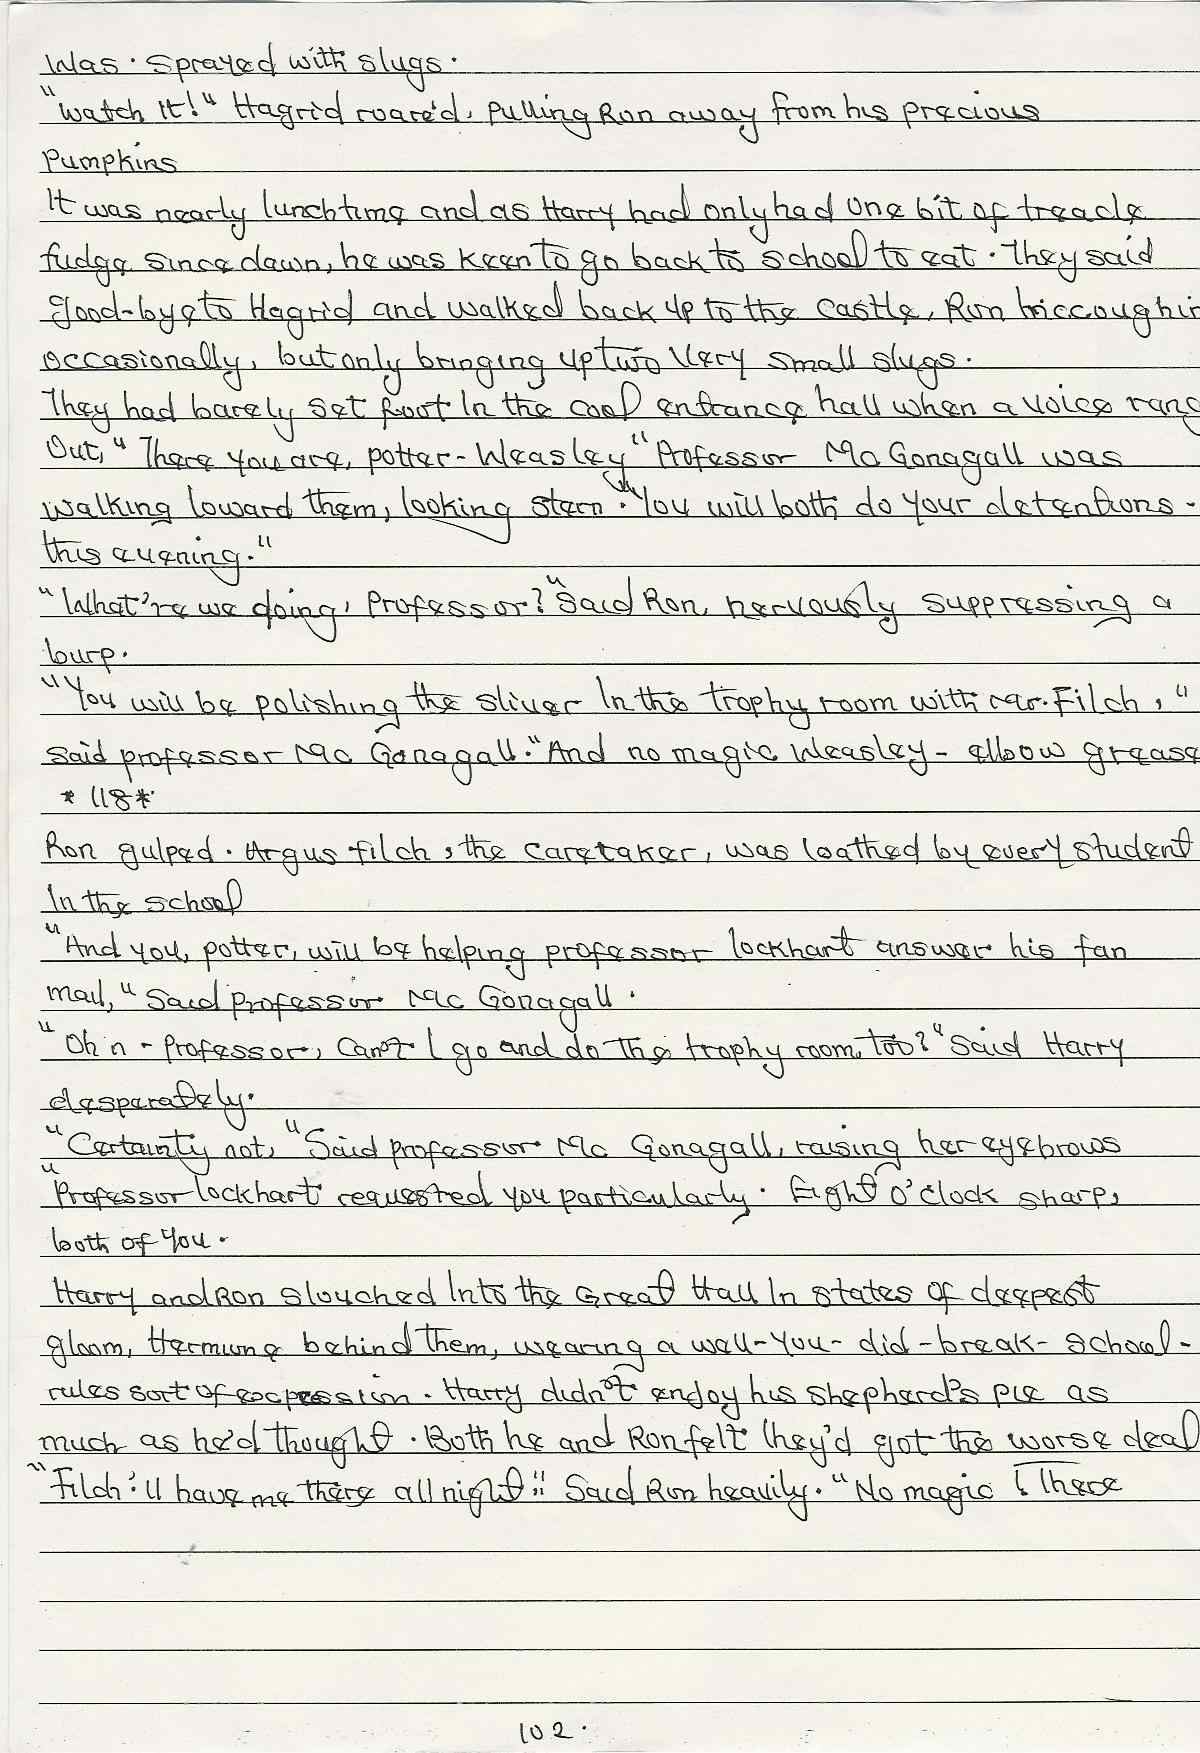 Was. Sprayed with slugs.
"Watch It!" Hagrid roare'd, pulling Ron away from his precious
Pumpkins
It was nearly lunchtime and as Harry had only had one bit of treacle
fudge since dawn, he was keen to go back to school to eat. They said
good-bye to Hagrid and walked back up to the castle, Ron hiccoughin
occasionally, but only bringing up two very small slugs.
They had barely set foot In the cool entrance hall when a voice rang
Out, "There you are, potter-Weasley" Professor Mc Gonagall was
walking toward them, looking stern. "You will both do your detentions.
this evening."
"What're we doing, Professor?" Said Ron, nervously suppressing a
burp.
"You will be polishing the sliver In the trophy room with Mr. Filch,"
said professor Mc Gonagall. "And no magic Weasley - elbow grease
* 118*
Ron gulped. Argus filch, the caretaker, was loathed by every student
In the school
"And you, potter, will be helping professor lockhart answer his fan
mail," Said professor Mc Gonagall.
"Oh n - Professor, can't I go and do the trophy room, too?" Said Harry
desperately.
"Certainty not," Said professor Mc Gonagall, raising her eyebrows
"Professor lockhart requested you particularly. Eight O'clock sharp,
both of You.
Harry and Ron slouched Into the Great Hall In states of deepest
gloom, Hermione behind them, wearing a well-You-did-break-school-
rules sort of expession. Harry didn't enjoy his shepherd's pie as
much as he'd thought. Both he and Ron felt they'd got the worse deal
"Filch'll have me there all night," Said Ron heavily. "No magic! There
102.